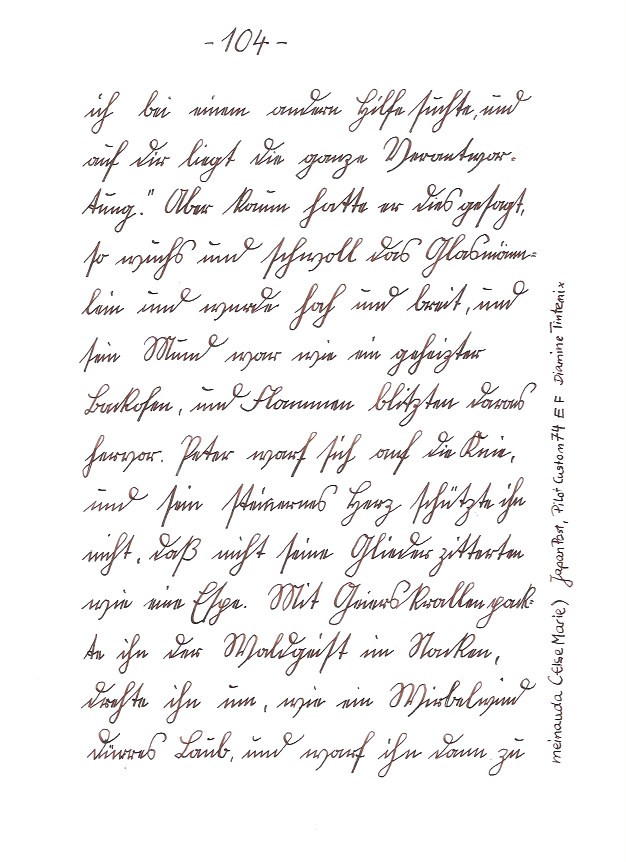 - 104 -
ich bei einem andern Hilfe suchte, und
auf dir liegt die ganze Verantwor-
tung." Aber kaum hatte er dies gesagt,
so wuchs und schwoll das Glasmänn-
lein und wurde hoch und breit, und
sein Mund war wie ein geheizter
Backofen, und Flammen blitzten daraus
hervor. Peter warf sich auf die Knie,
und sein steinernes Herz schützte ihn
nicht, daß nicht seine Glieder zitterten
wie eine Espe. Mit Geierskrallen pack-
te ihn der Waldgeist im Nacken,
drehte ihn um, wie ein Wirbelwind
dürres Laub, und warf ihn dann zu
meinauda (Else Marie) JapanPost, Pilot Custom 74 EF Diamine Tintenix